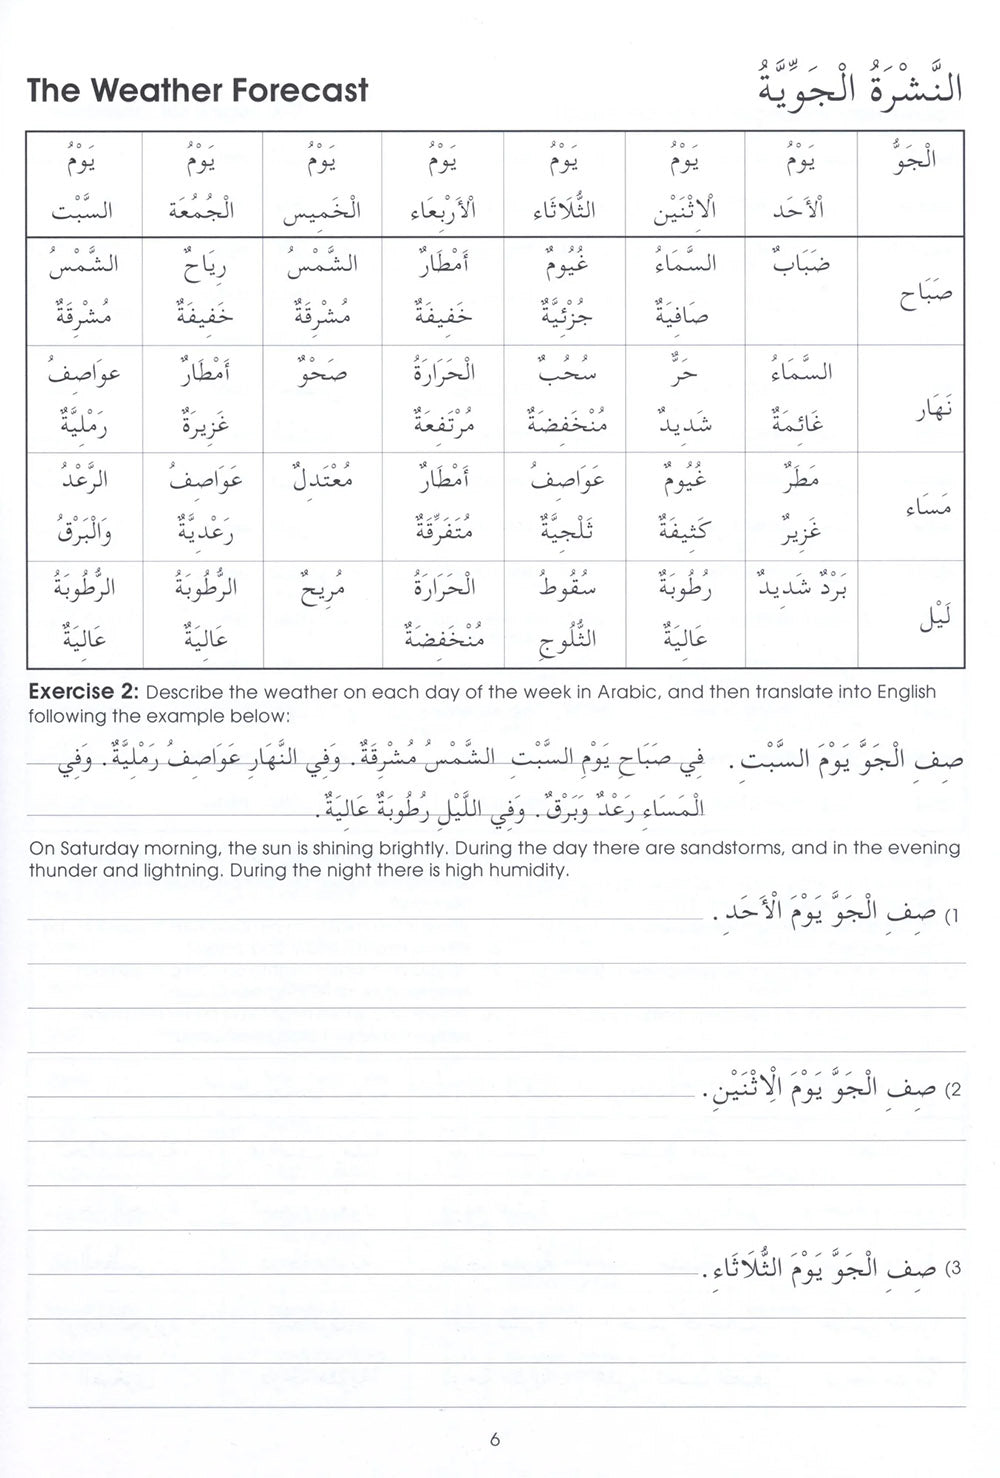 The Weather Forecast النَّشْرَةُ الْجَوِّيَّةُ
الْجَوُّ يَوْمُ يَوْمُ يَوْمُ يَوْمُ يَوْمُ يَوْمُ يَوْمُ
الْأَحَد الْاِثْنَيْن الثُّلَاثَاء الْأَرْبِعَاء الْخَمِيس الْجُمُعَة السَّبْت
صَبَاح ضَبَابٌ السَّمَاءُ غُيُومٌ أَمْطَارٌ الشَّمْسُ رِيَاحٌ الشَّمْسُ
صَافِيَةٌ جُزْئِيَّةٌ خَفِيفَةٌ مُشْرِقَةٌ خَفِيفَةٌ مُشْرِقَةٌ
نَهَار السَّمَاءُ حَرٌّ سُحُبٌ الْحَرَارَةُ صَحْوٌ أَمْطَارٌ عوَاصِفُ
غَائِمَةٌ شَدِيدٌ مُنْخَفِضَةٌ مُرْتَفِعَةٌ غَزِيرَةٌ رَمْلِيَّةٌ
مَسَاء مَطَرٌ غُيُومٌ عَوَاصِفُ أَمْطَارٌ مُعْتَدِلٌ عَوَاصِفُ الرَّعْدُ
غَزِيرٌ كَثِيفَةٌ ثَلْجِيَّةٌ مُتَفَرِّقَةٌ رَعْدِيَّةٌ وَالْبَرْقُ
لَيْل بَرْدٌ شَدِيدٌ رُطُوبَةٌ سُقُوطُ الْحَرَارَةُ مُرِيحٌ الرُّطُوبَةُ الرُّطُوبَةُ
عَالِيَةٌ الثُّلُوجِ مُنْخَفِضَةٌ عَالِيَةٌ عَالِيَةٌ
Exercise 2: Describe the weather on each day of the week in Arabic, and then translate into English
following the example below:
صِفِ الْجَوَّ يَوْمَ السَّبْت. فِي صَبَاحِ يَوْمِ السَّبْتِ الشَّمْسُ مُشْرِقَةٌ. وَفِي النَّهَارِ عَوَاصِفُ رَمْلِيَّةٌ. وَفِي
الْمَسَاءِ رَعْدٌ وَبَرْقٌ. وَفِي اللَّيْلِ رُطُوبَةٌ عَالِيَةٌ.
On Saturday morning, the sun is shining brightly. During the day there are sandstorms, and in the evening
thunder and lightning. During the night there is high humidity.
1) صِفِ الْجَوَّ يَوْمَ الْأَحَدِ.
2) صِفِ الْجَوَّ يَوْمَ الْاِثْنَيْنِ.
3) صِفِ الْجَوَّ يَوْمَ الثُّلَاثَاءِ.
6